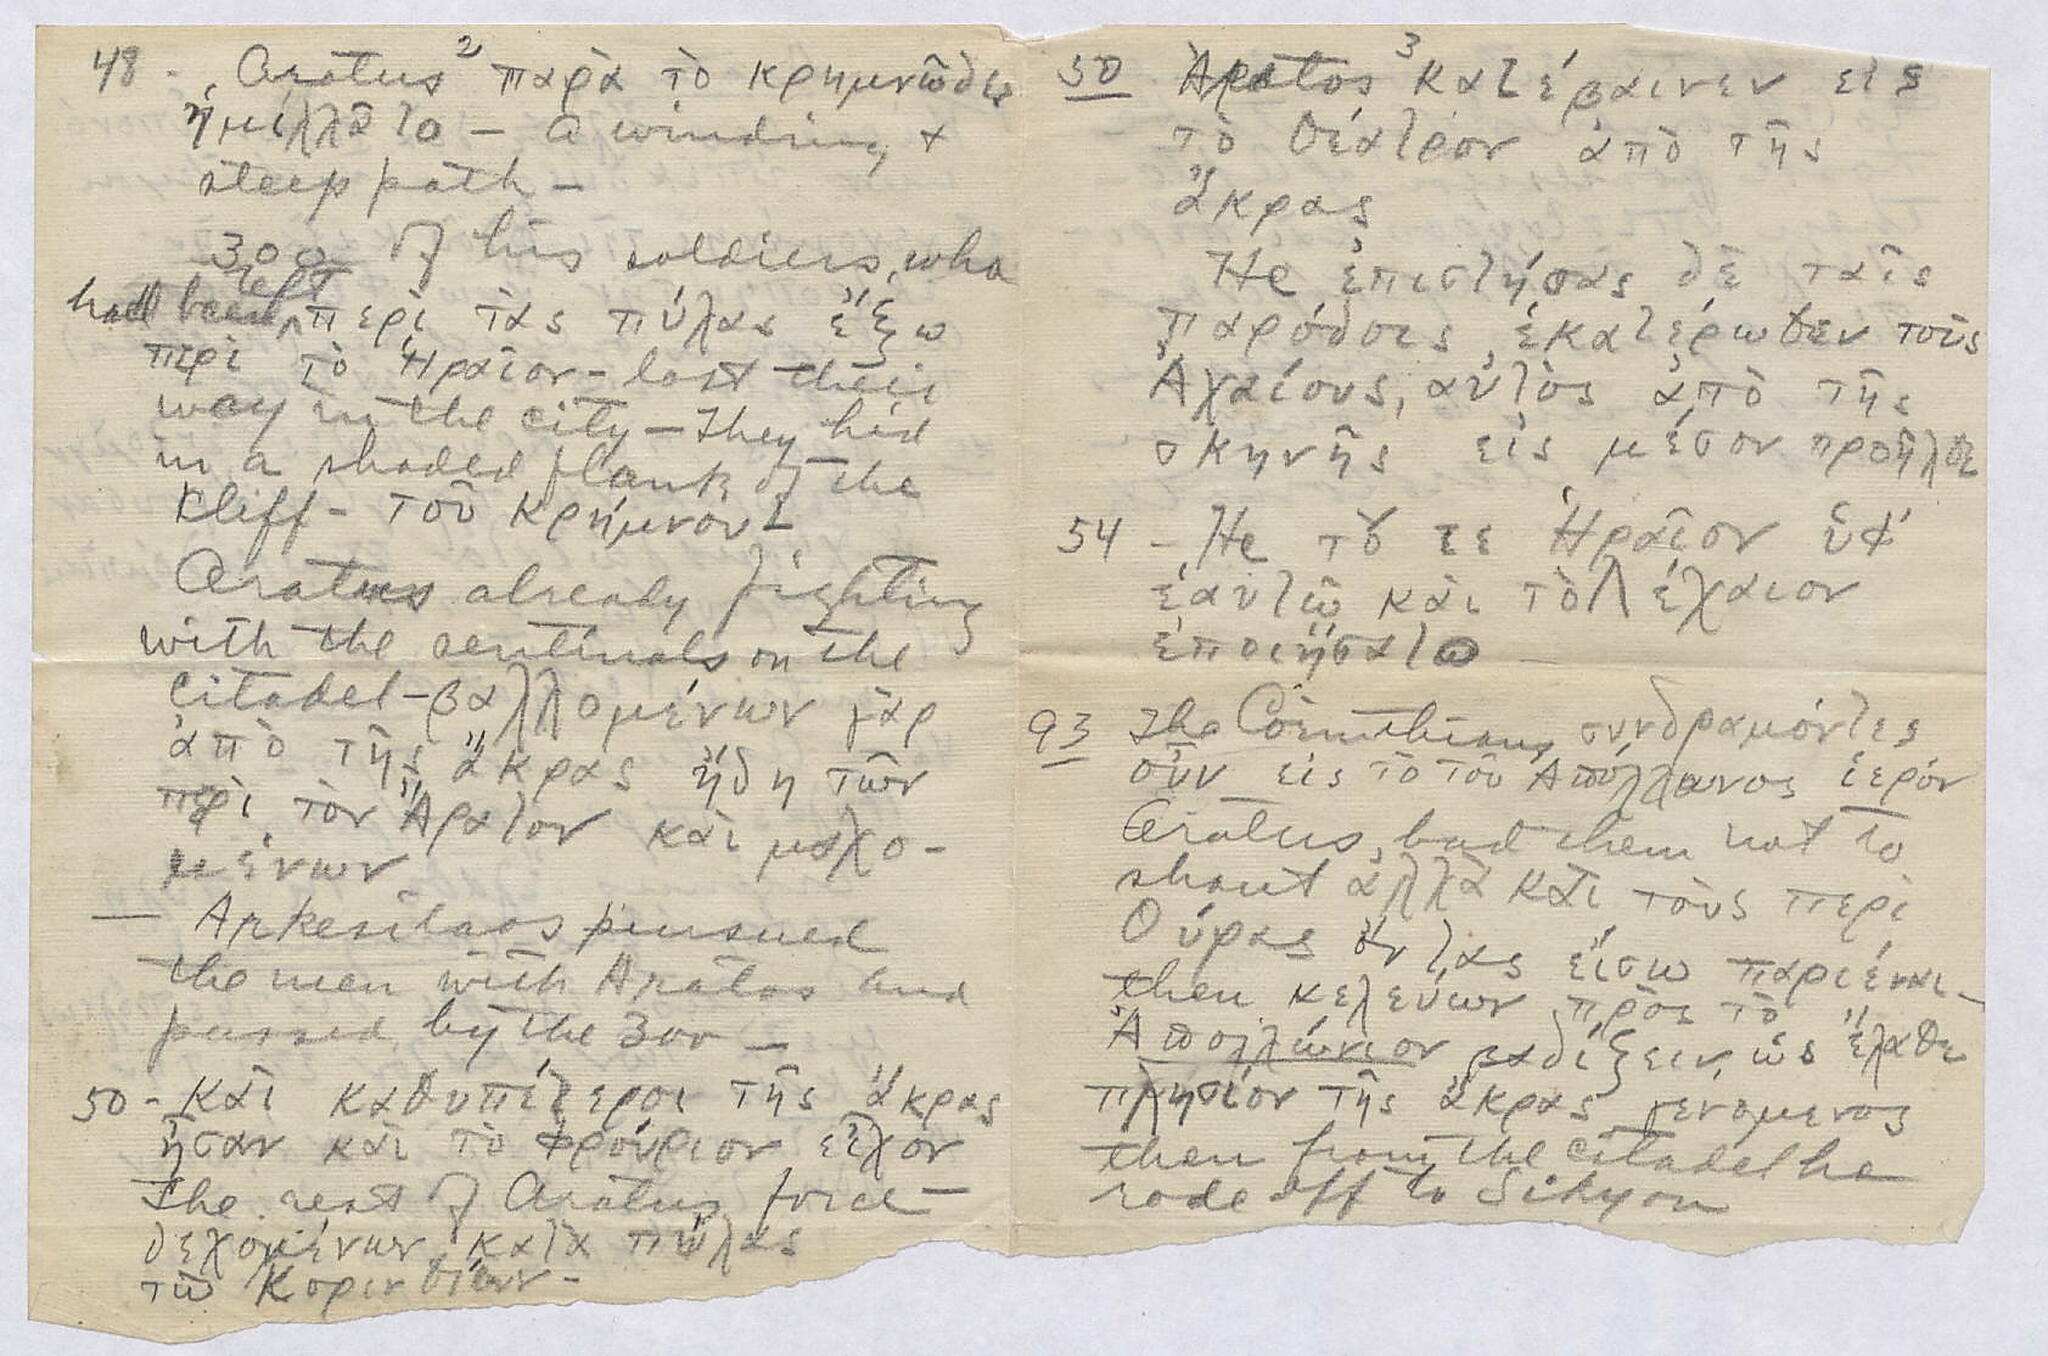 48 - Aratus ² παρὰ τὸ κρημνῶδες
ἡμιλλᾶτο - a winding +
steep path -
300 of his soldiers, who
left
had been περὶ τὰς πύλας ἔξω
περὶ τὸ Ἡραῖον - lost their
way in the city - They hid
in a shaded flank of the
cliff - τοῦ κρήμνου -
Aratus already fighting
with the sentinals on the
citadel - βαλλομένων γὰρ
ἀπὸ τῆς ἄκρας ἤδη τῶν
περὶ τὸν Ἄρατον καὶ μαχο-
μένων
— Arkesilaos pursued
the men with Aratos and
passed by the 300 -
50 - καὶ καθυπέρτεροι τῆς ἄκρας
ἦσαν καὶ τὸ φρούριον εἶχον
The rest of Aratus force -
δεχομένων κατὰ πύλας
τῶ Κορινθίων -
50 Aratos ³ κατέβαινεν εἰς
τὸ θέατρον ἀπὸ τῆς
ἄκρας
He ἐπιστήσας δὲ ταῖς
παρόδοις ἑκατέρωθεν τοὺς
Ἀχαίους, αὐτὸς ἀπὸ τῆς
σκηνῆς εἰς μέσον προῆλθε
54 - He τό τε Ἡραῖον ὑφ'
ἑαυτῶ καὶ τὸ Λέχαιον
ἐποιήσατο
93 The Corinthians συνδραμόντες
οὖν εἰς τὸ τοῦ Ἀπόλλωνος ἱερόν
Aratus, bad them not to
shout ἀλλὰ καὶ τοὺς περὶ
θύρας ὄντας εἴσω παριέναι -
then κελεύων πρὸς τὸ
Ἀπολλώνιον βαδίζειν, ὡς ἔλαθε
πλησίον τῆς ἄκρας γενομενος
then from the citadel he
rode off to Sikyon